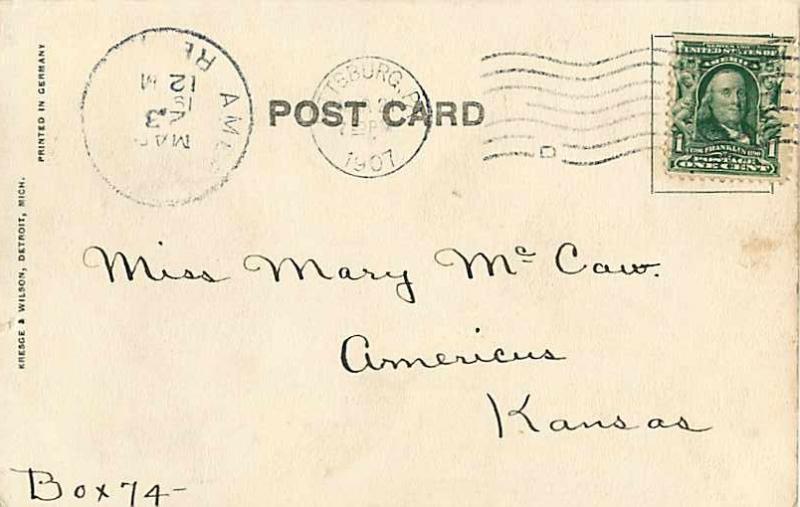 PRINTED IN GERMANY
KRESGE & WILSON, DETROIT, MICH.
MAR
3
12 M
POST CARD
1907
D
SERIES 1902
UNITED STATES OF
AMERICA
FRANKLIN
1 POSTAGE 1
ONE CENT
Miss Mary Mc Caw.
Americus
Kansas
Box 74-